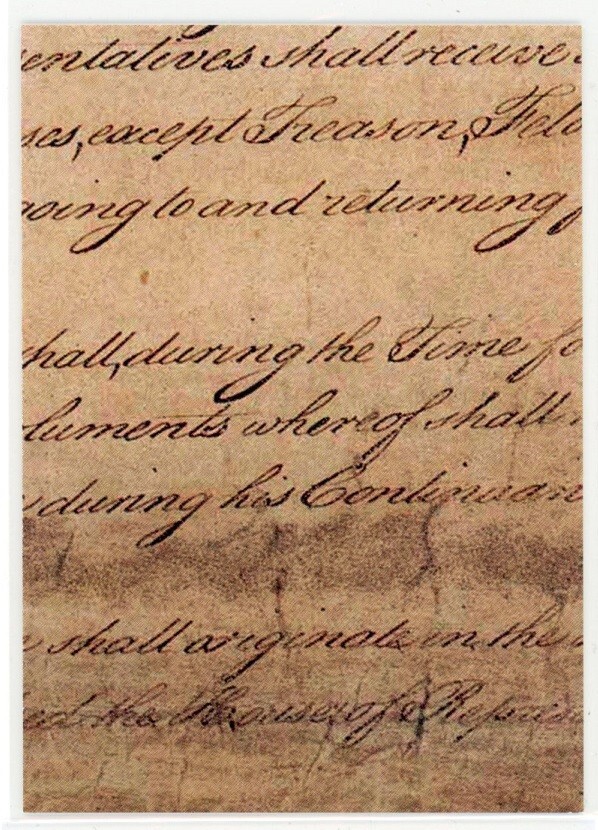 entatives shall receive
ses, except Treason, Felo
going to and returning f
hall, during the Time fo
luments whereof shall
during his Continuan
shall originate in the
ed the House of Repres